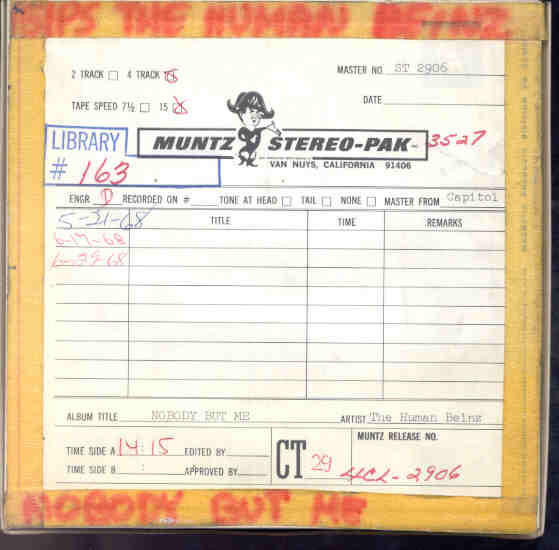 THE HUMAN BEINZ
2 TRACK 4 TRACK MASTER NO ST 2906
TAPE SPEED 7½ 15 DATE
LIBRARY
# 163
MUNTZ STEREO-PAK 3527
VAN NUYS, CALIFORNIA 91406
ENGR D RECORDED ON # TONE AT HEAD TAIL NONE MASTER FROM Capitol
5-21-68 TITLE TIME REMARKS
6-17-68
6-29-68
ALBUM TITLE NOBODY BUT ME ARTIST The Human Beinz
TIME SIDE A 14:15 EDITED BY CT 29 MUNTZ RELEASE NO.
TIME SIDE B : APPROVED BY 4CL-2906
NOBODY BUT ME